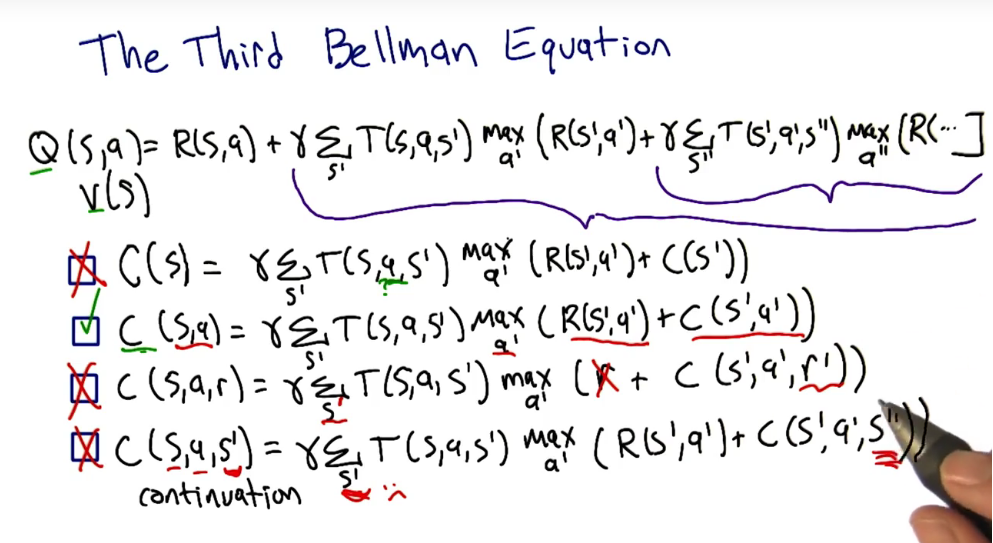 The Third Bellman Equation
Q(s,a) = R(s,a) + γ Σ_s' T(s,a,s') max_a' (R(s',a') + γ Σ_s'' T(s',a',s'') max_a'' (R(...]
V(s)
C(s) = γ Σ_s' T(s,a,s') max_a' (R(s',a') + C(s'))
?
C(s,a) = γ Σ_s' T(s,a,s') max_a' (R(s',a') + C(s',a'))
C(s,a,r) = γ Σ_s' T(s,a,s') max_a' (r + C(s',a',r'))
C(s,a,s') = γ Σ_s' T(s,a,s') max_a' (R(s',a') + C(s',a',s''))
continuation